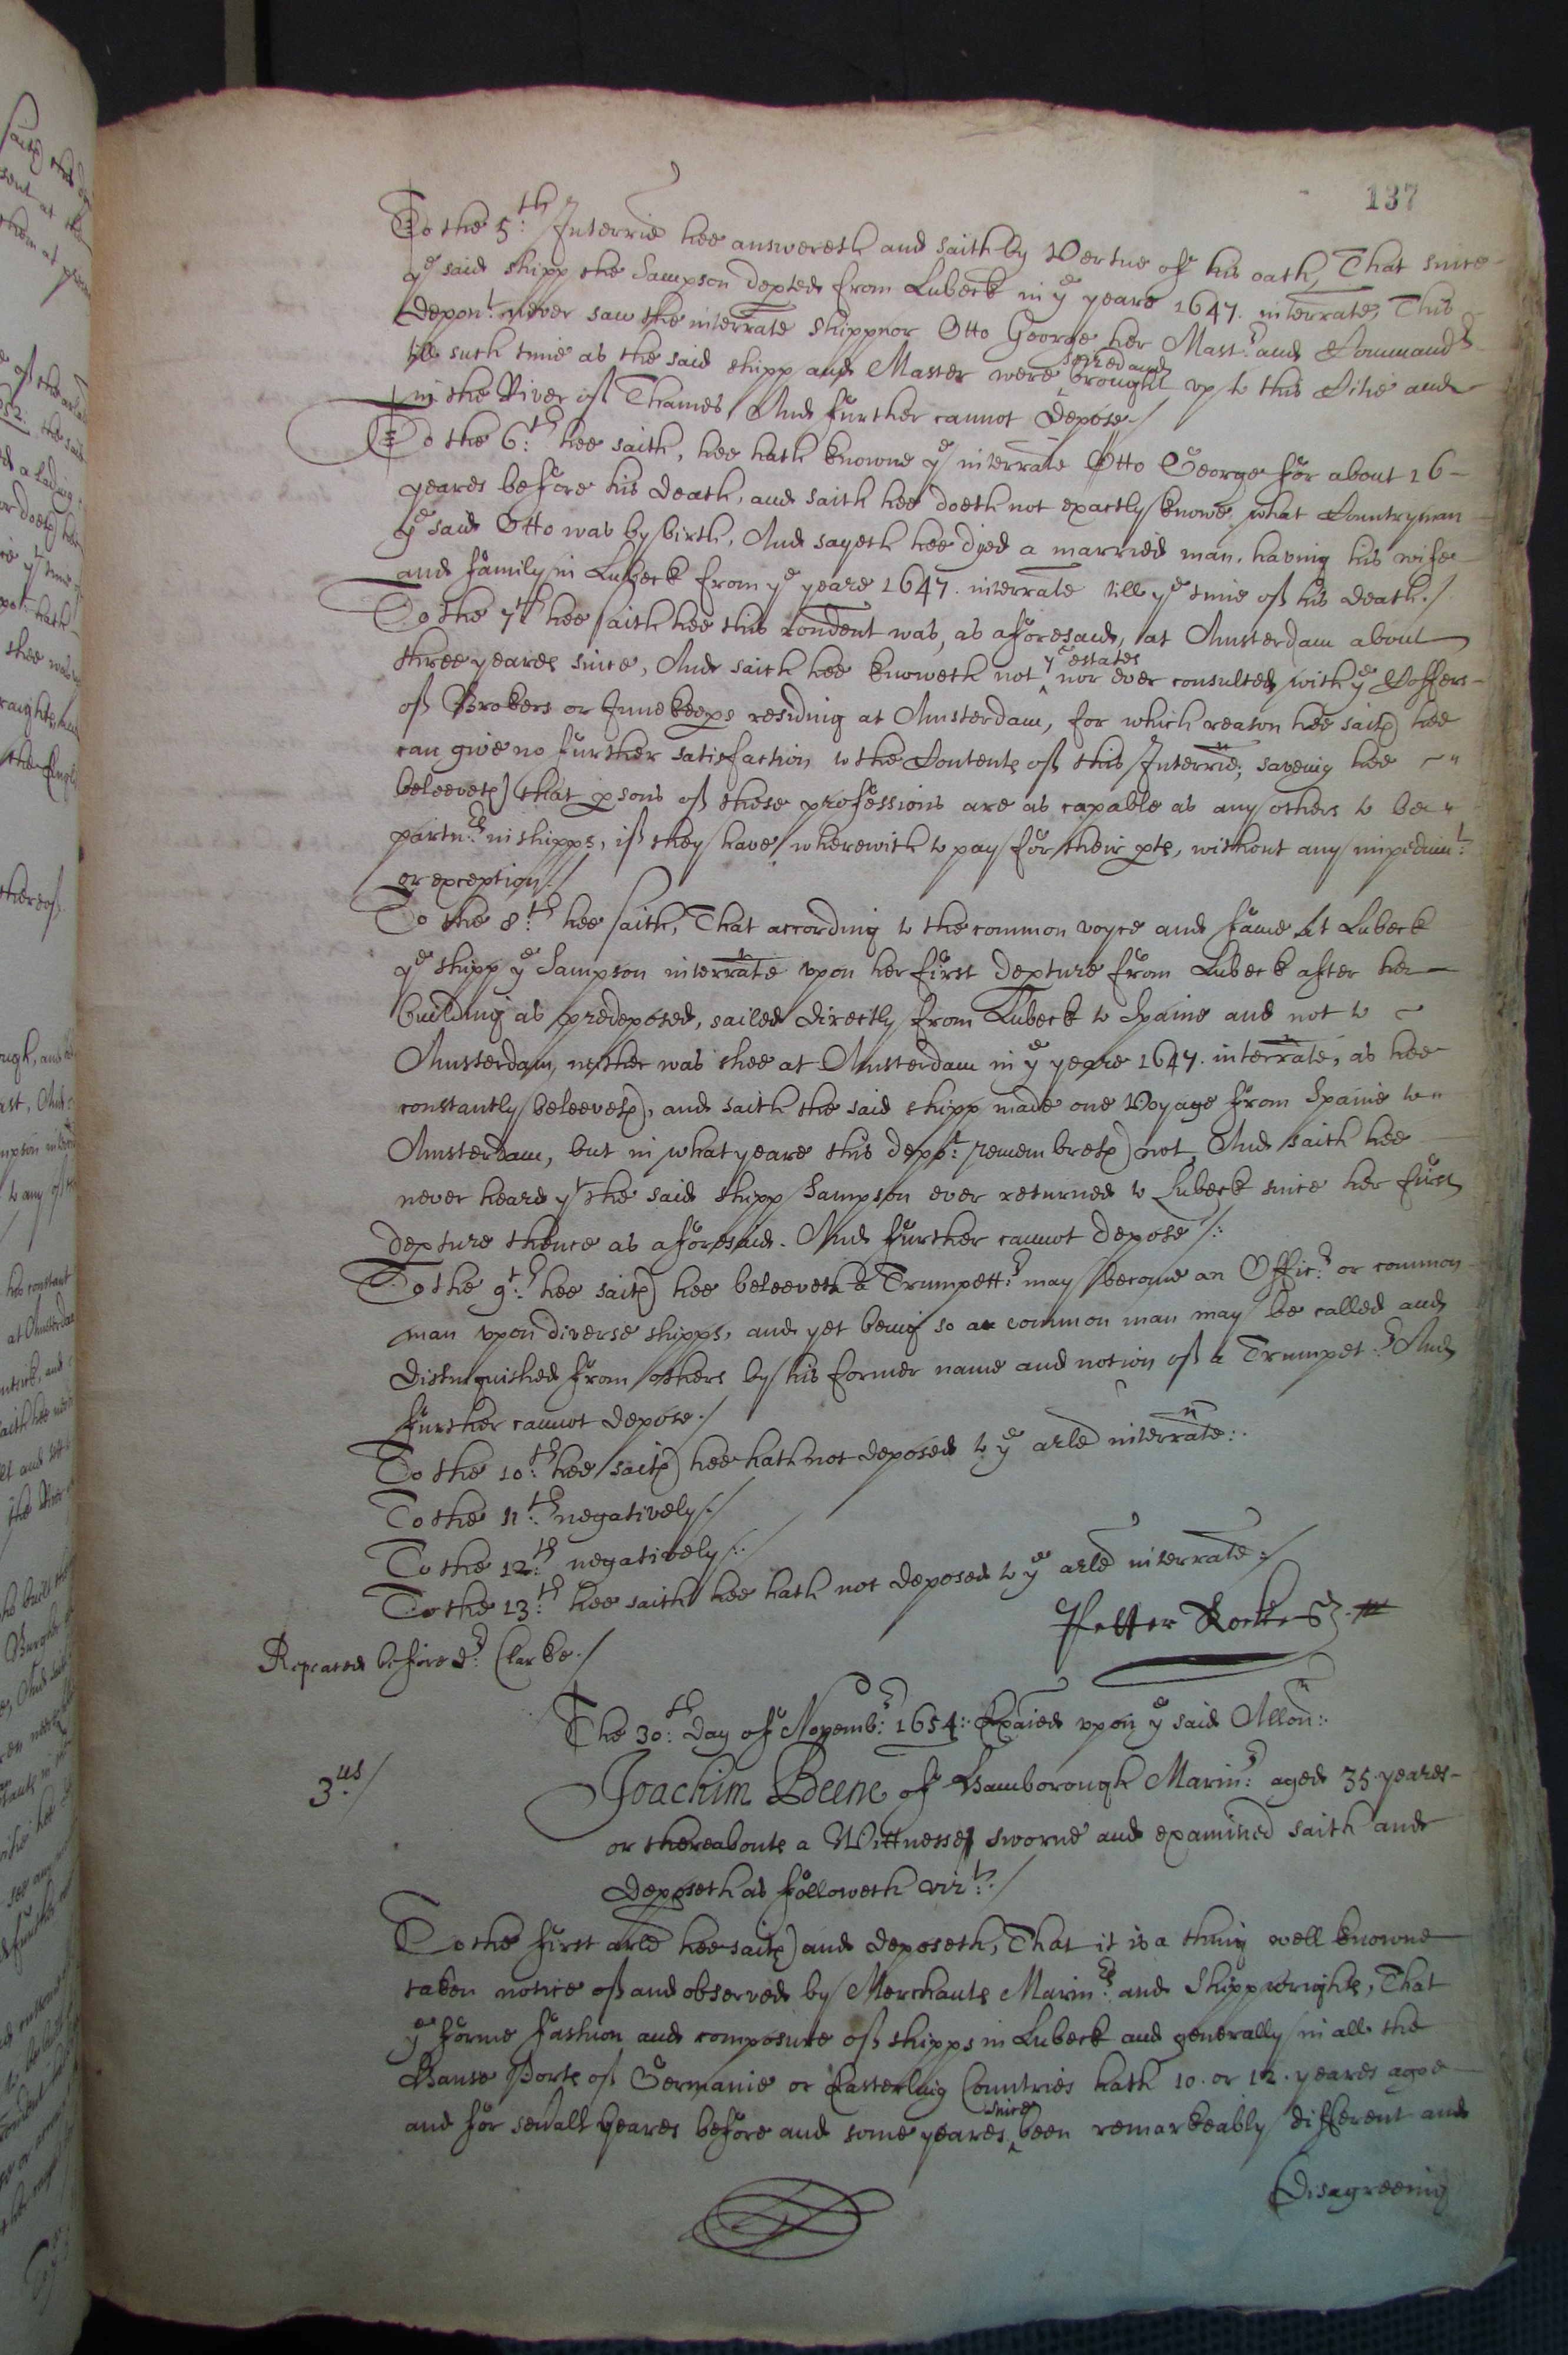 137
To the 5:th Interrie hee answereth and saith by Vertue of his oath, That since
ye said shipp the Sampson depted from Lubeck in ye yeare 1647. interrate, This
depont: never saw the interrate Shipp nor Otto George her Mastr: and Commandr
till such time as the said shipp and Master were seized and brought vp to this Citie and
in the River of Thames, And further cannot depose./
To the 6:th hee saith, hee hath knowne ye interrate Otto George for about 16
yeares before his death, and saith hee doeth not exactly knowe what Countryman
ye said Otto was by birth, And sayeth hee dyed a married man, having his wife
and family in Lubeck from ye yeare 1647. interrate till ye time of his death./
To the 7th hee saith hee this rondent was, as aforesaid, at Amsterdam about
three yeares since, And saith hee knoweth not ye estates nor ever consulted with ye Coffers
of Brokers or Innekeeps residing at Amsterdam, for which reason hee saith hee
can give no further satisfaction to the Contents of this Interrie, saveing hee
beleeveth that psons of those professions are as capable as any others to be
partnrs: in shipps, if they have wherewith to pay for their pts, without any impedimt:
or exception./
To the 8:th hee saith, That according to the common voyce and fame at Lubeck
ye shipp ye Sampson interrate vpon her first depture from Lubeck after her
building as predeposed, sailed directly from Lubeck to Spaine and not to
Amsterdam, neither was shee at Amsterdam in ye yeare 1647. interrate, as hee
constantly beleeveth, and saith the said shipp made one Voyage from Spaine to
Amsterdam, but in what yeare this depot: remembreth not, And saith hee
never heard yt the said shipp Sampson ever returned to Lubeck since her first
depture thence as aforesaid. And further cannot depose /:
To the 9:th hee saith hee beleeveth a Trumpettr: may become an Officr: or common
man vpon diverse shipps, and yet being so a common man may be called and
distinguished from others by his former name and notion of a Trumpetr: And
further cannot depose./
To the 10:th hee saith hee hath not deposed to ye arle interrate:.
To the 11:th negatively./
To the 12:th negatively/:.
To the 13:th hee saith hee hath not deposed to ye arle interrate:/
Petter
Repeated before dr: Clarke./
The 30:th day of Novembr: 1654:. Exaied vpon ye said Allon:.
3.us/
Joachim Beene of Hamborough Marinr: aged 35 yeares
or thereabouts a Wittnesse sworne and examined saith and
deposeth as followeth vizt:./
To the first arle hee saith and deposeth, That it is a thing well knowne
taken notice of and observed by Merchants Marinrs: and Shippwrights, That
ye forme fashion and composure of shipps in Lubeck and generally in all the
Hanse Ports of Germanie or Easterling Countries hath 10. or 12. yeares agoe
and for sevall yeares before and some yeares since been remarkeably different and
Disagreeing